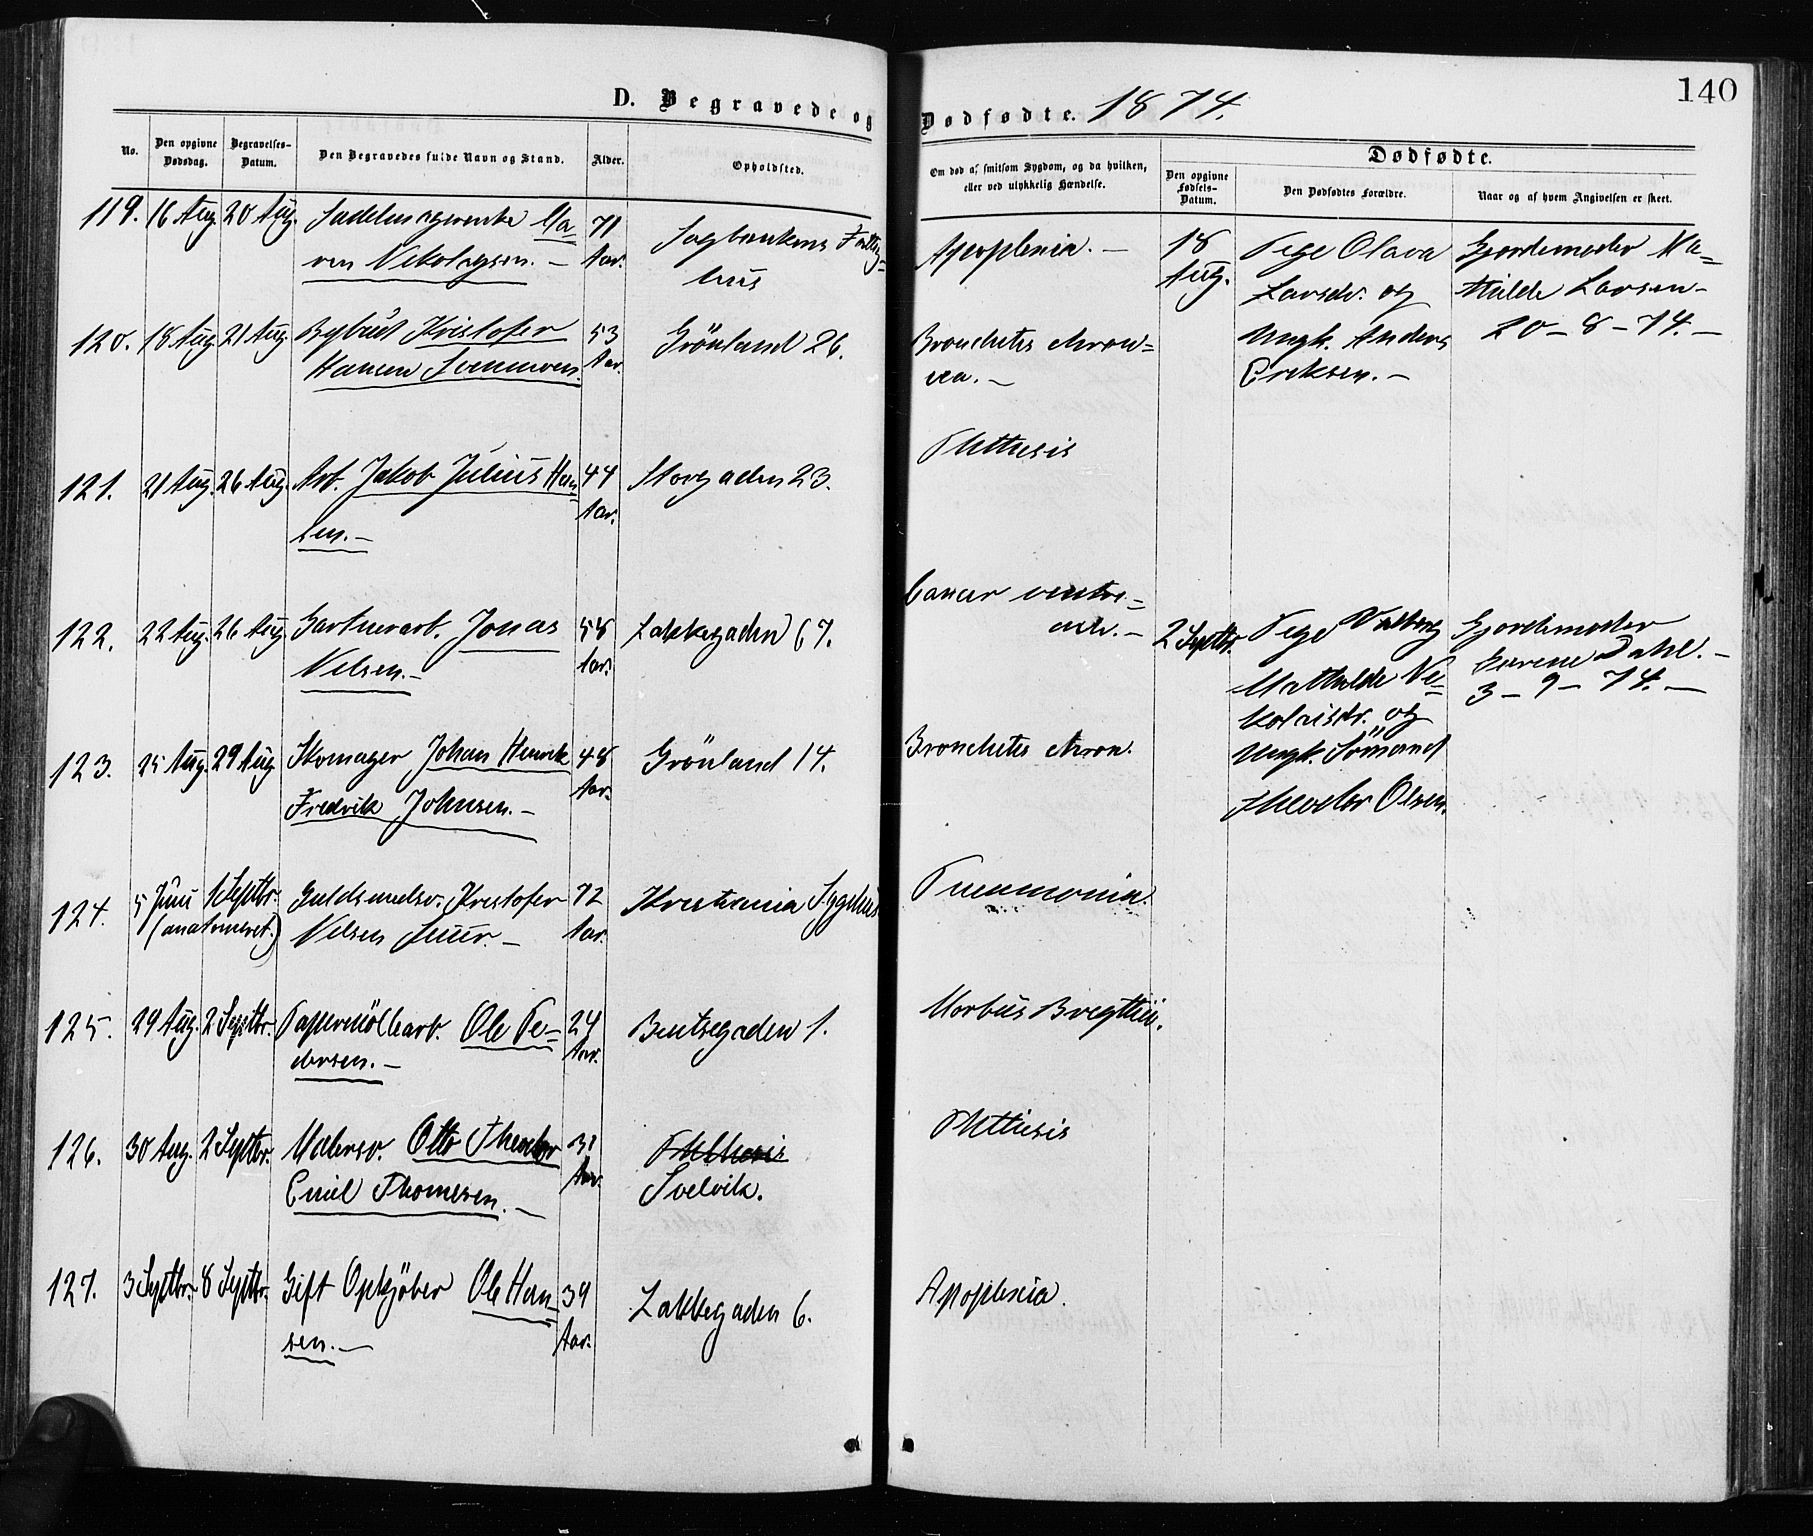 140
D. Begravede og Dødfødte. 1874.
No.
Den opgivne Dødsdag.
Begravelses-Datum.
Den Begravedes fulde Navn og Stand.
Alder.
Opholdsted.
Om død af smitsom Sygdom, og da hvilken, eller ved ulykkelig Hændelse.
Dødfødte.
Den opgivne Fødsels-Datum.
Den Dødfødtes Forældre.
Naar og af hvem Angivelsen er skeet.
119. 16 Aug. 20 Aug. Sadelmagerenke Ma= 71 Sagbankens Fattig=
ren Nikolaysen. – Aar. hus
Apoplexia. –
120. 18 Aug. 21 Aug. Bybud Kristofer 53 Grönland 26.
Hansen Svennven. Aar.
Bronchitis chron=
ica. –
121. 21 Aug. 26 Aug. Arb. Jakob Julius Han= 44 Storgaden 23.
sen. – Aar.
Phthisis
122. 22 Aug. 26 Aug. Gartnerarb. Jonas 58 Lakkegaden 67.
Nilsen. – Aar.
Cancer ventri=
culi. –
123. 25 Aug. 29 Aug. Skomager Johan Henrik 48 Grönland 14.
Fredrik Johnsen. – Aar.
Bronchitis chron.
124. 5 Juni 1 Septbr. Guldsmedsv. Kristofer 72 Kristiania Sygehus
(anatomeret.) Nilsen Juur. – Aar.
Pneumonia.
125. 29 Aug. 2 Septbr. Papirmöllearb. Ole Pe= 24 Bentsegaden 1.
dersen. – Aar.
Morbus Brigthii.
126. 30 Aug. 2 Septbr. Malersv. Otto Theodor 31 Phthisis
Emil Thomesen. – Aar. Svelvik.
Phthisis
127. 3 Septbr. 8 Septbr. Gift Opkjöber Ole Han= 39 Lakkegaden 6.
sen. – Aar.
Apoplexia.
18 Pige Olava Gjordemoder Ma=
Aug. Larsdr. og thilde Larsen –
Ungk. Anders 20 – 8 – 74. –
Eriksen. –
2 Septbr. Pige Valborg Gjordemoder
Mathilde Ni= Dahl. –
kolaisdr. og 3 – 9 – 74. –
Ungk. Sömand
Theodor Olsen.